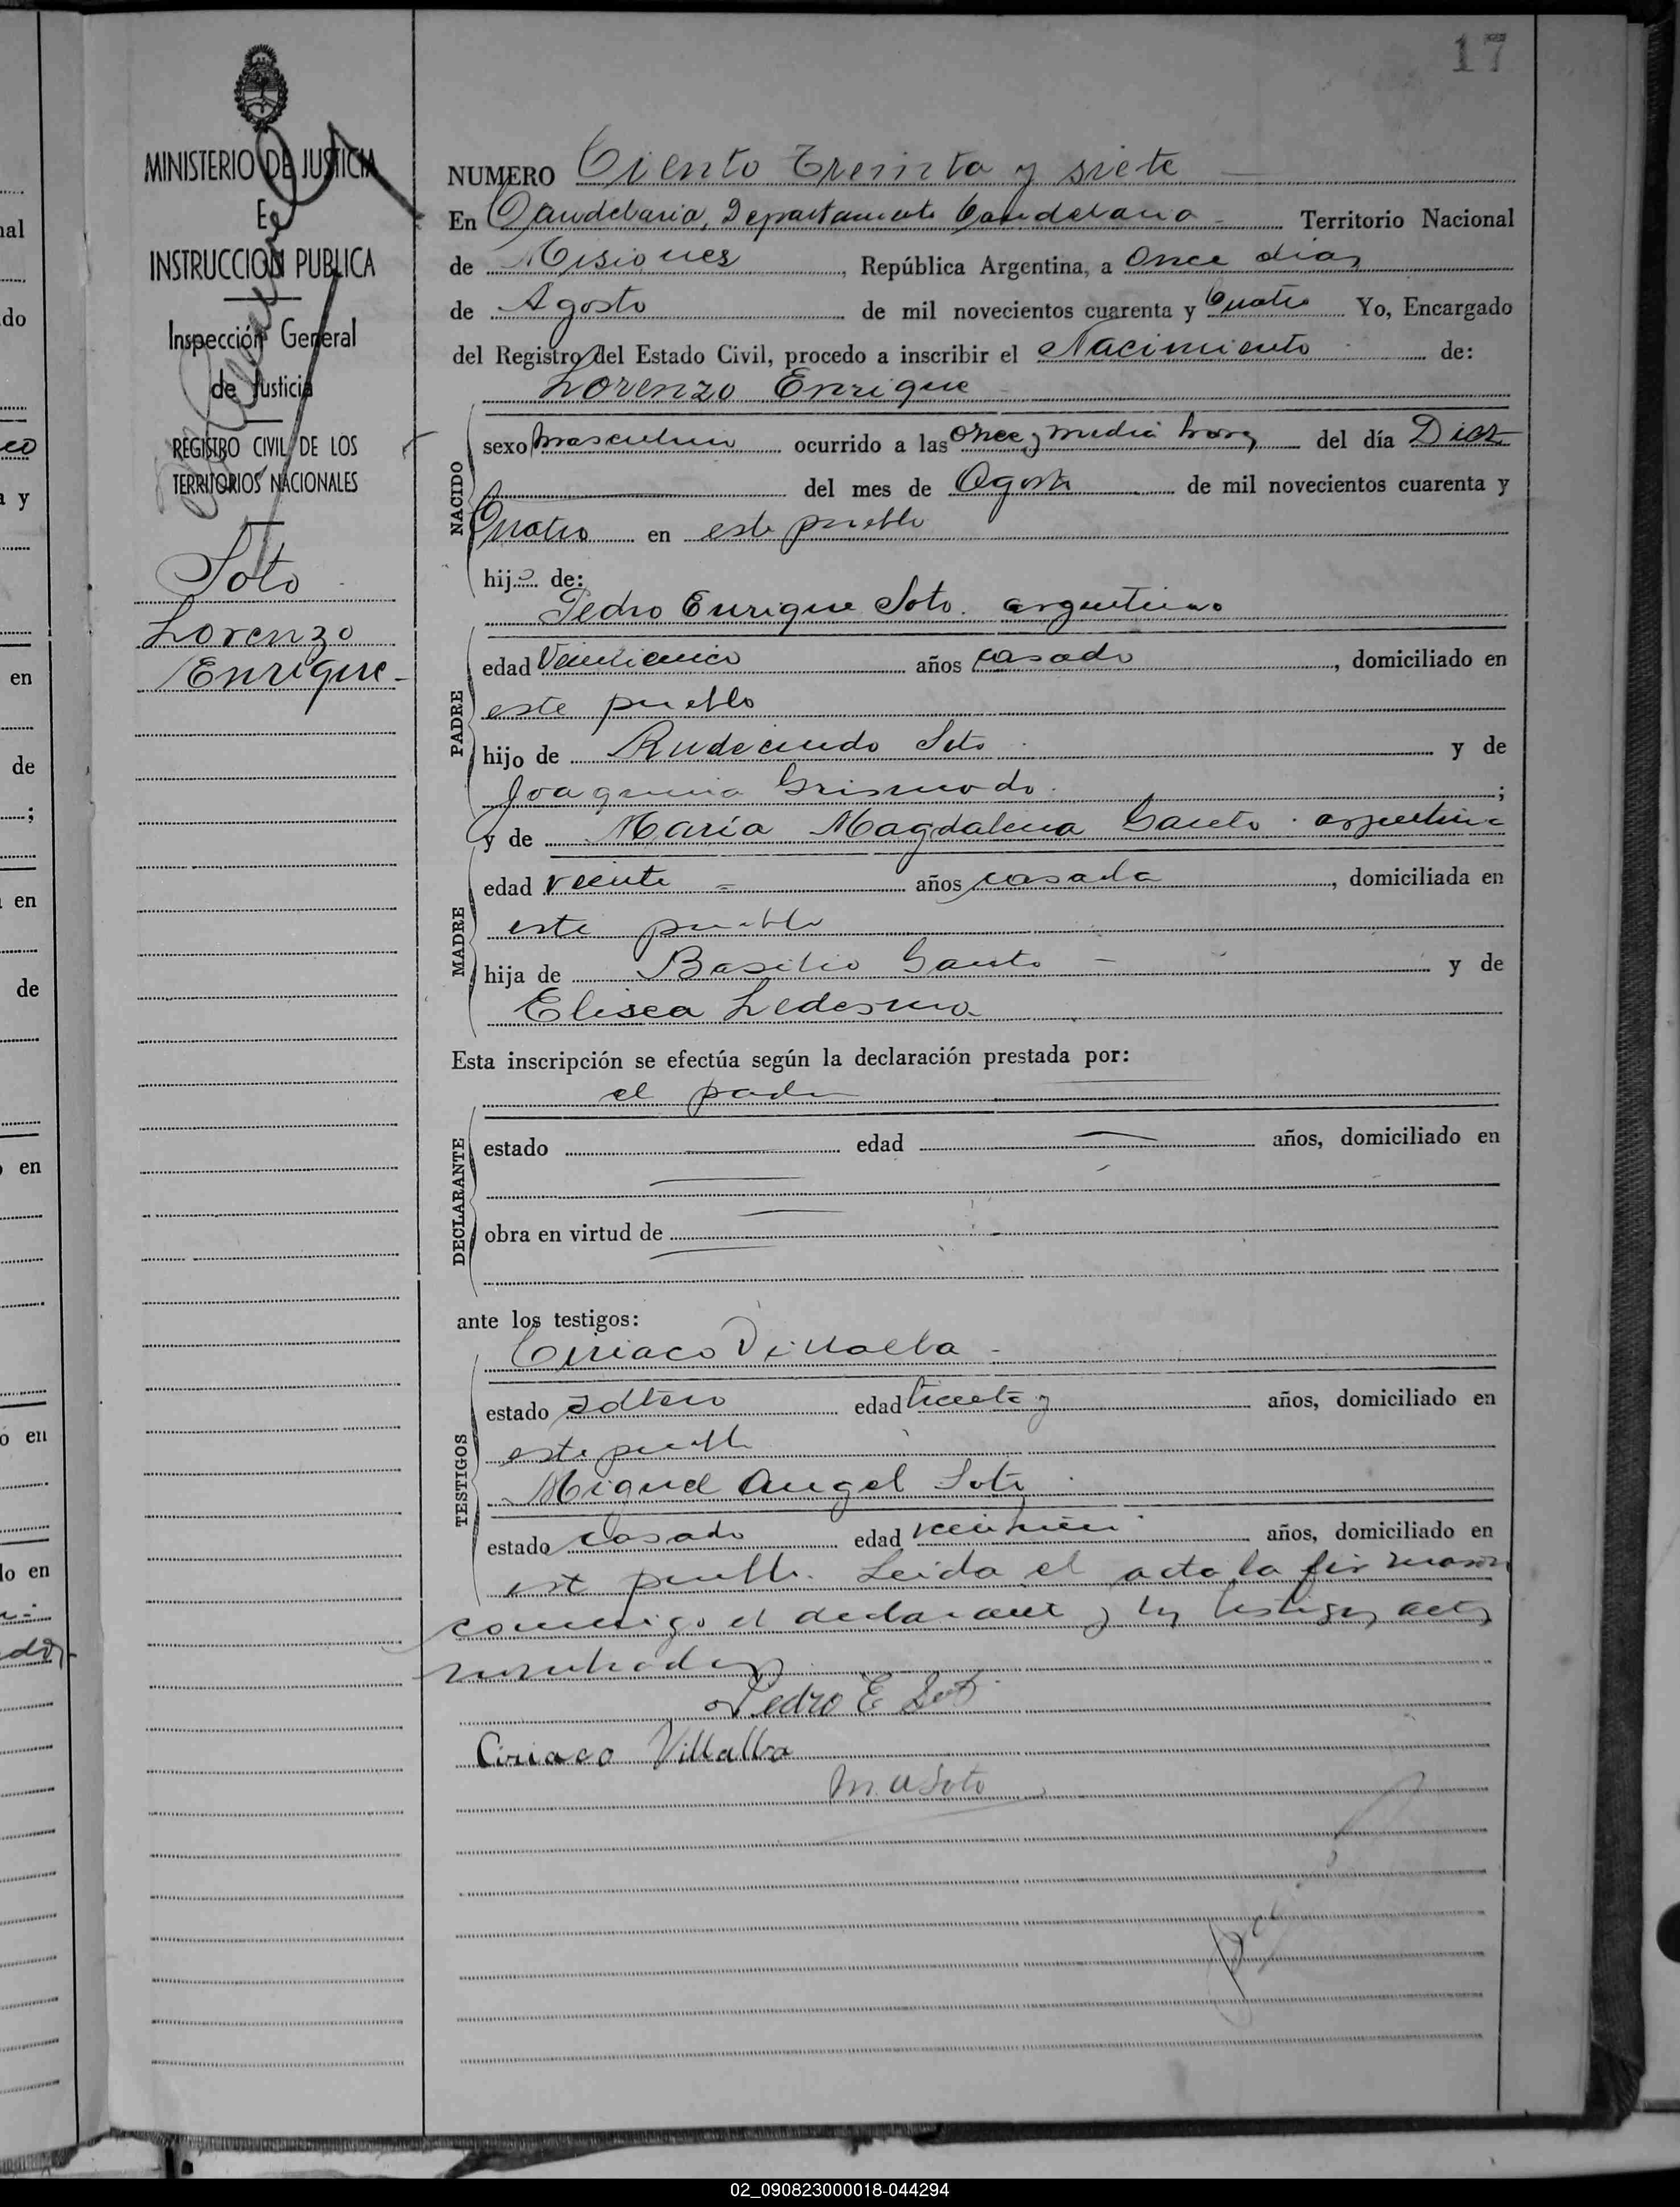 17
MINISTERIO DE JUSTICIA
E
INSTRUCCION PUBLICA
Inspección General
de Justicia
REGISTRO CIVIL DE LOS
TERRITORIOS NACIONALES
Soto
Lorenzo
Enrique-
NUMERO Ciento Treinta y siete
En Candelaria, Departamento Candelaria Territorio Nacional
de Misiones, República Argentina, a Once dias
de Agosto de mil novecientos cuarenta y Cuatro Yo, Encargado
del Registro del Estado Civil, procedo a inscribir el Nacimiento de:
Lorenzo Enrique
NACIDO
sexo masculino ocurrido a las once y media horas del día Diez
del mes de Agosto de mil novecientos cuarenta y
Cuatro en este pueblo
hijo de:
Pedro Enrique Soto. argentino
PADRE
edad Veinticinco años casado, domiciliado en
este pueblo
hijo de Rudecindo Soto y de
Joaquina ;
y de María Magdalena argentina
MADRE
edad veinte años casada, domiciliada en
este pueblo
hija de Basilio y de
Elisea Ledesma
Esta inscripción se efectúa según la declaración prestada por:
el padre
DECLARANTE
estado edad años, domiciliado en
obra en virtud de
ante los testigos:
Ciriaco Villalba
TESTIGOS
estado soltero edad treinta y años, domiciliado en
este pueblo
Miguel Angel Soto
estado casado edad años, domiciliado en
este pueblo. Leida el acta la firmaron
conmigo el declarante y los testigos
Pedro E Soto
Ciriaco Villalba
M. A Soto
al
do
y
en
de
;
en
de
en
o en
do en
02_090823000018-044294